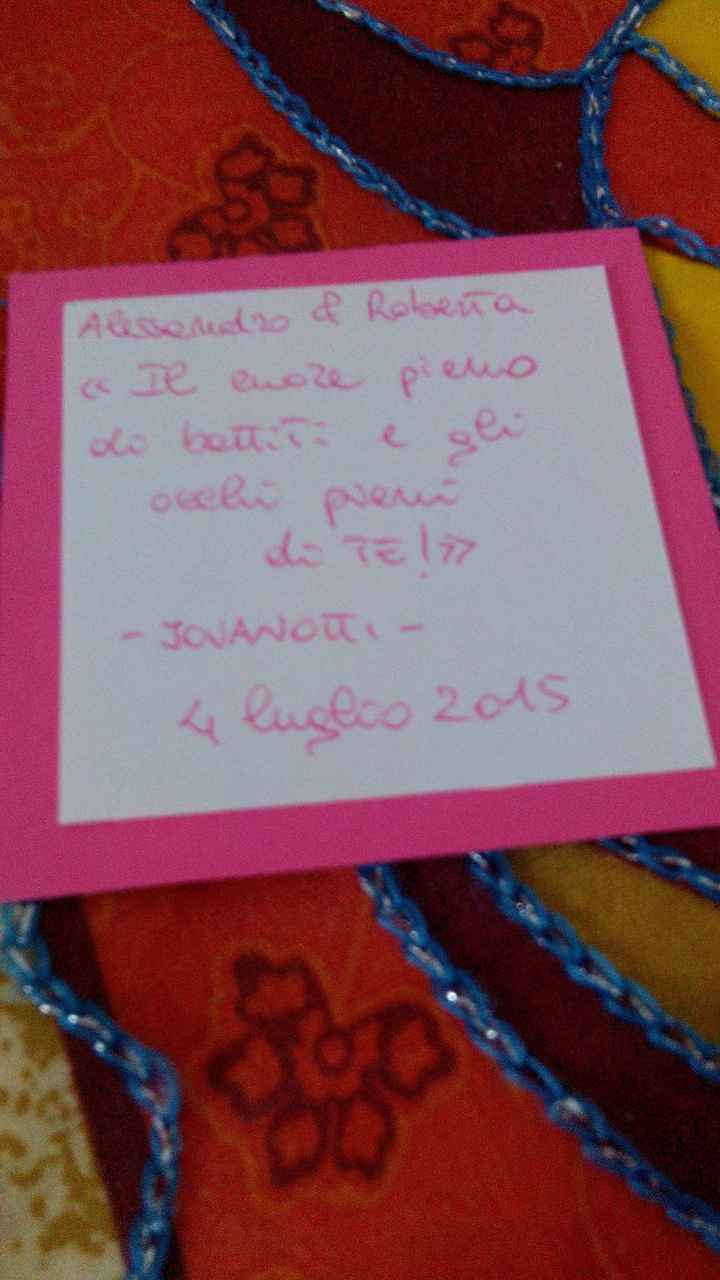 Alessandro & Roberta
« Il cuore pieno
di battiti e gli
occhi pieni
di TE!»
- JOVANOTTI -
4 luglio 2015